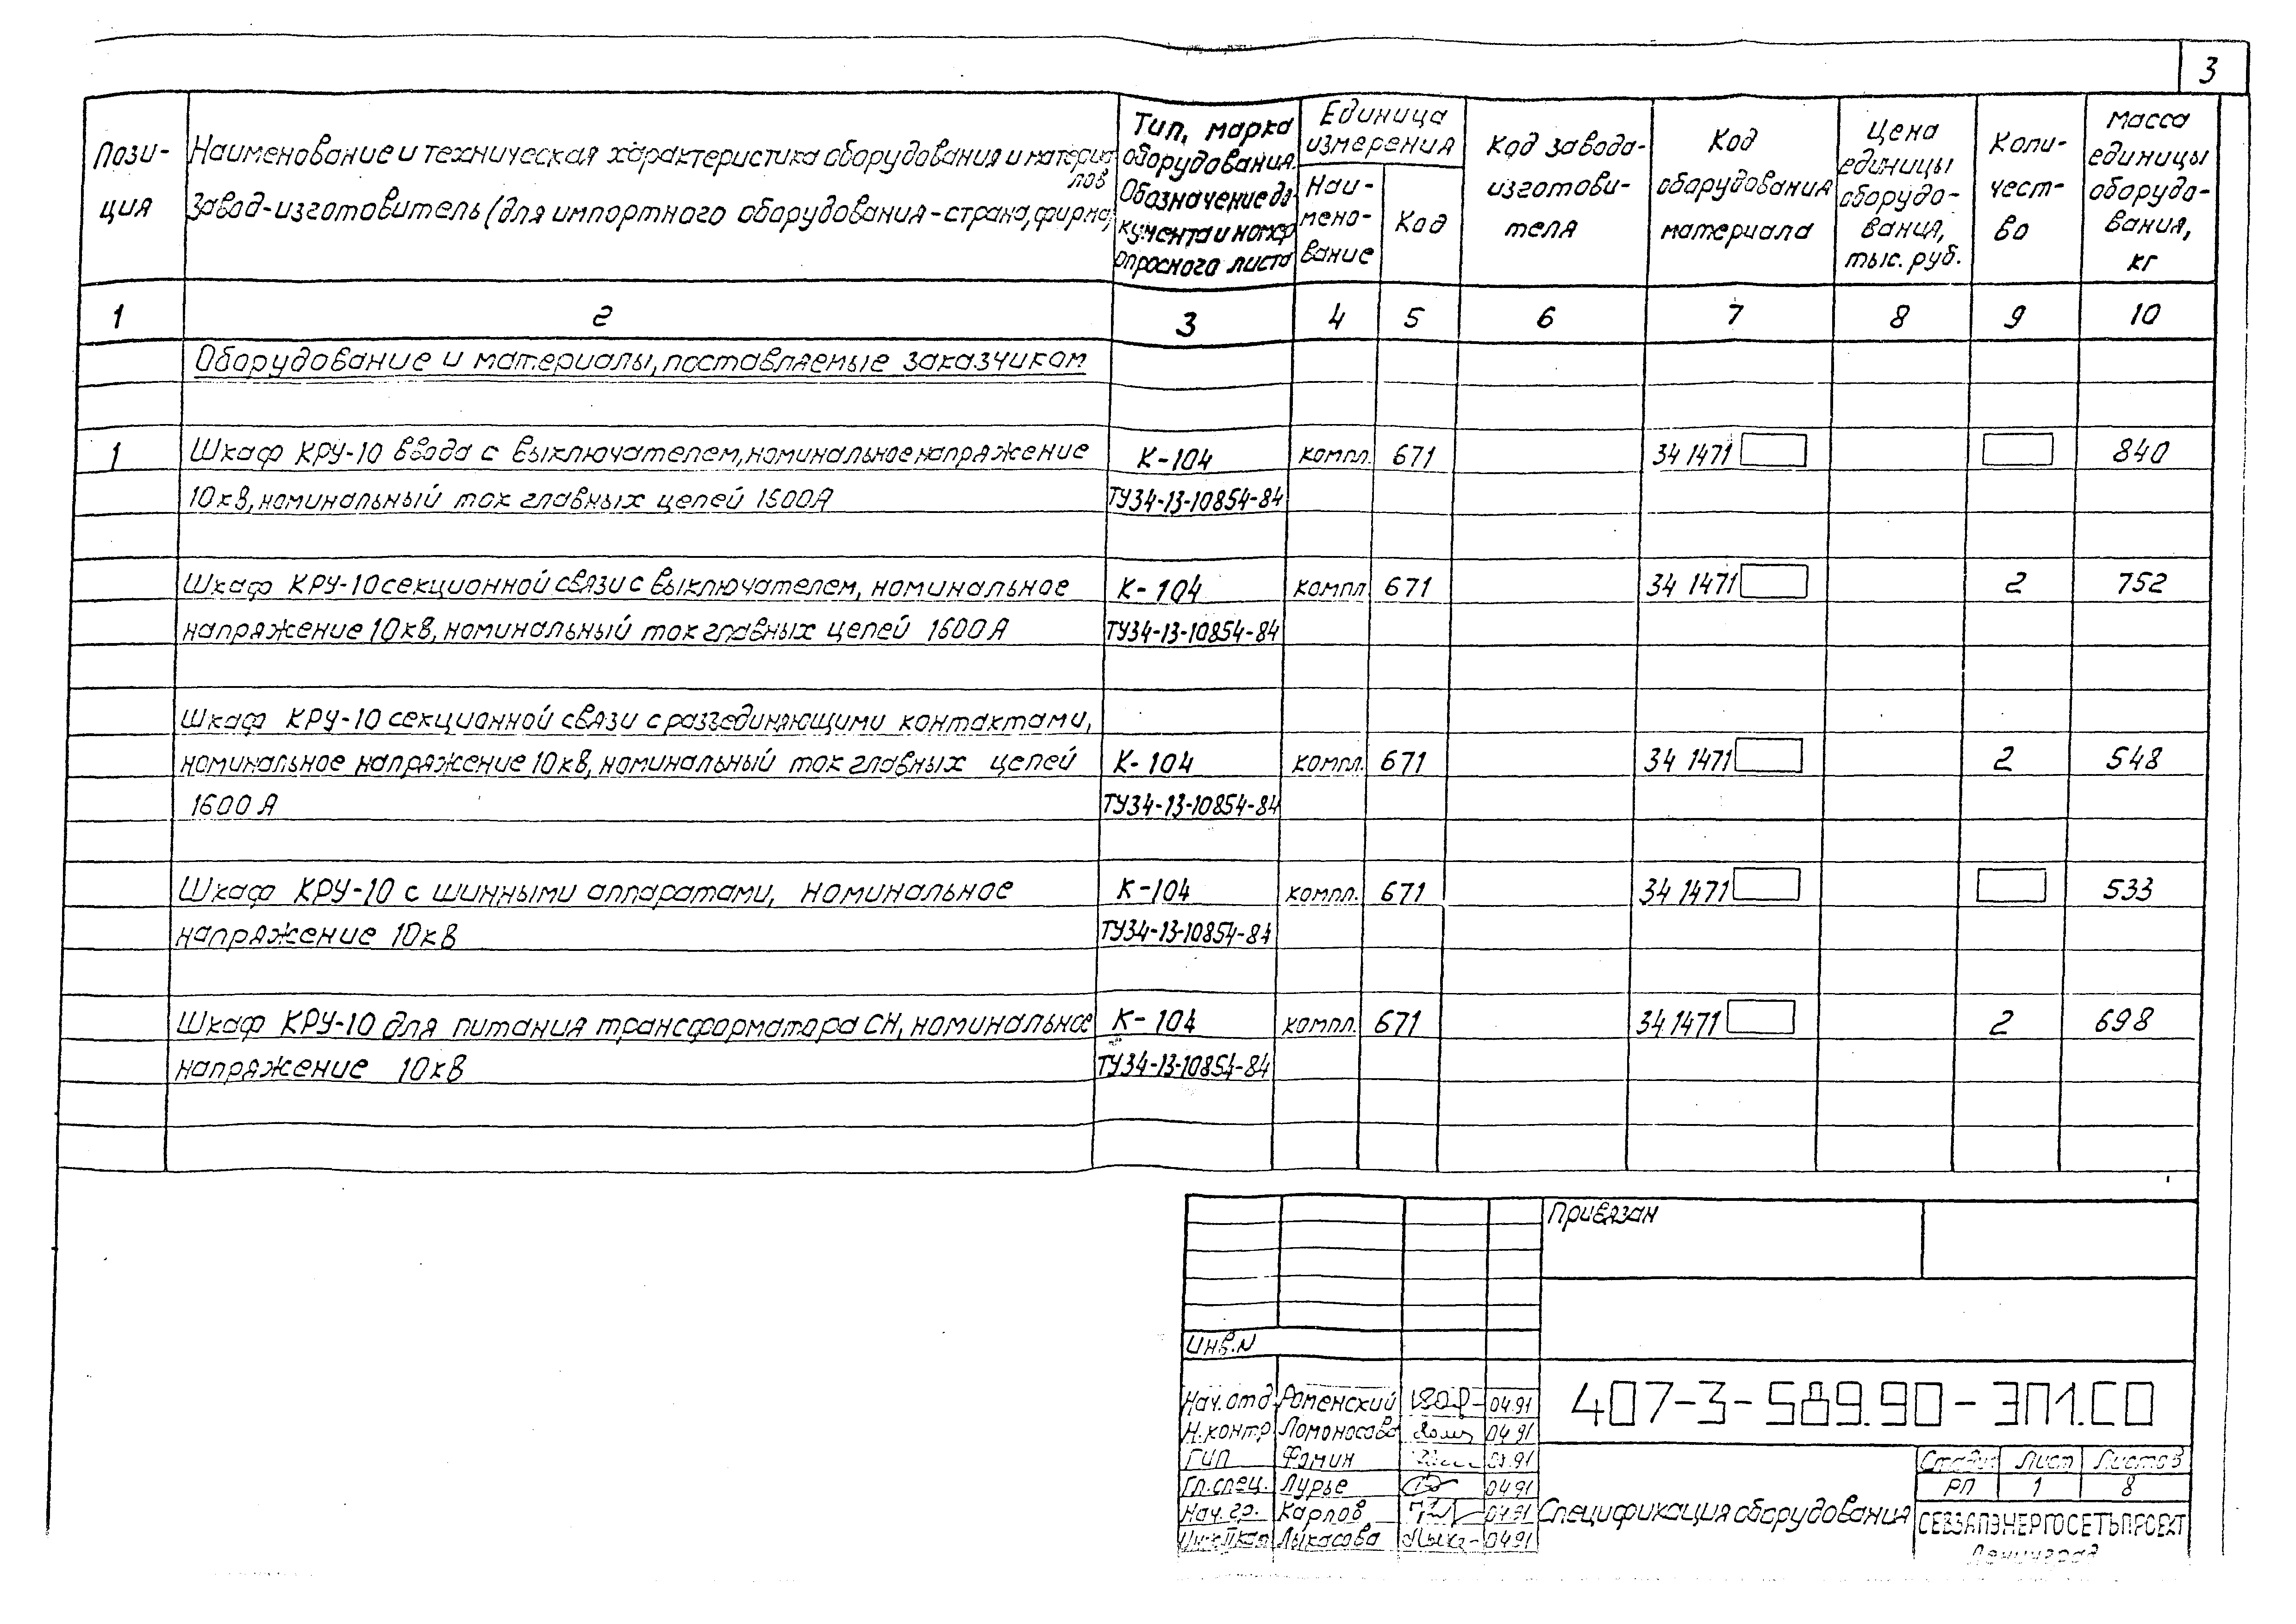 3
Пози-
ция
Наименование и техническая характеристика оборудования и материа
лов
Завод-изготовитель (для импортного оборудования - страна, фирма)
Тип, марка
оборудования.
Обозначение до-
кумента и номер
опросного листа
Единица
измерения
Наи-
мено-
вание
Код
Код завода-
изготови-
теля
Код
оборудования
материала
Цена
единицы
оборудо-
вания,
тыс. руб.
Коли-
чест-
во
Масса
единицы
оборудо-
вания,
кг
1 2 3 4 5 6 7 8 9 10
Оборудование и материалы, поставляемые заказчиком
1 Шкаф КРУ-10 ввода с выключателем, номинальное напряжение К-104 компл. 671 34 1471 840
10кВ, номинальный ток главных цепей 1600А ТУ34-13-10854-84
Шкаф КРУ-10 секционной связи с выключателем, номинальное К-104 компл 671 34 1471 2 752
напряжение 10кВ, номинальный ток главных цепей 1600А ТУ34-13-10854-84
Шкаф КРУ-10 секционной связи с разъединяющими контактами,
номинальное напряжение 10кВ, номинальный ток главных цепей К-104 компл. 671 34 1471 2 548
1600А ТУ34-13-10854-84
Шкаф КРУ-10 с шинными аппаратами, номинальное К-104 компл. 671 34 1471 533
напряжение 10кВ ТУ34-13-10854-84
Шкаф КРУ-10 для питания трансформатора СН, номинальное К-104 компл. 671 34 1471 2 698
напряжение 10кВ ТУ34-13-10854-84
Привязан
Инв.N
Нач. отд Роменский 04.91
Н.контр. Ломоносова 04.91
ГИП Фомин
Гл.спец. Лурье 04.91
Нач. гр. Карпов 04.91
Лыкасова 04.91
407-3-589.90-ЭП1.СО
Спецификация оборудования
Стадия Лист Листов
РП 1 8
СЕВЗАПЭНЕРГОСЕТЬПРОЕКТ
Ленинград